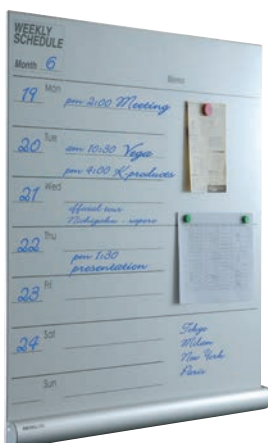 WEEKLY
SCHEDULE
Month 6
Memo
19 Mon
pm 2:00 Meeting
20 Tue
am 10:30 Vega
pm 4:00 K-products
21 Wed
official tour
22 Thu
pm 1:30
presentation
23 Fri
24 Sat
Tokyo
Milan
New York
Paris
Sun